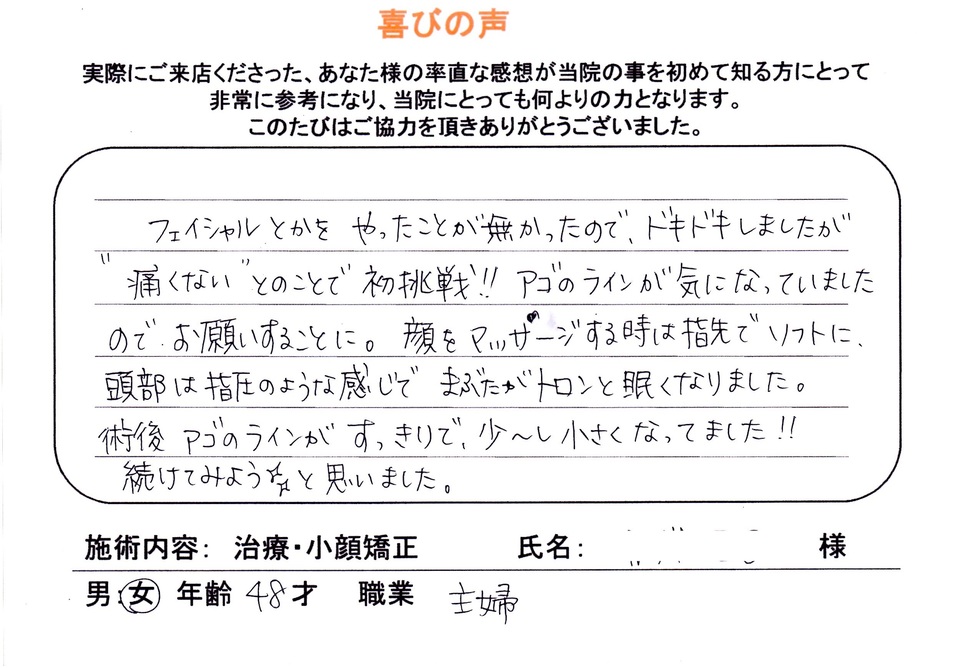 喜びの声
実際にご来店くださった、あなた様の率直な感想が当院の事を初めて知る方にとって
非常に参考になり、当院にとっても何よりの力となります。
このたびはご協力を頂きありがとうございました。
フェイシャルとかを やったことが無かったので、ドキドキしましたが
"痛くない"とのことで 初挑戦!! アゴのラインが気になっていました
ので お願いすることに。 顔をマッサージする時は指先で ソフトに、
頭部は指圧のような感じで まぶたがトロンと眠くなりました。
術後 アゴのラインが すっきりで、少〜し小さくなってました!!
続けてみよう☆と思いました。
施術内容: 治療・小顔矯正 氏名: 様
男:女 年齢 48才 職業 主婦